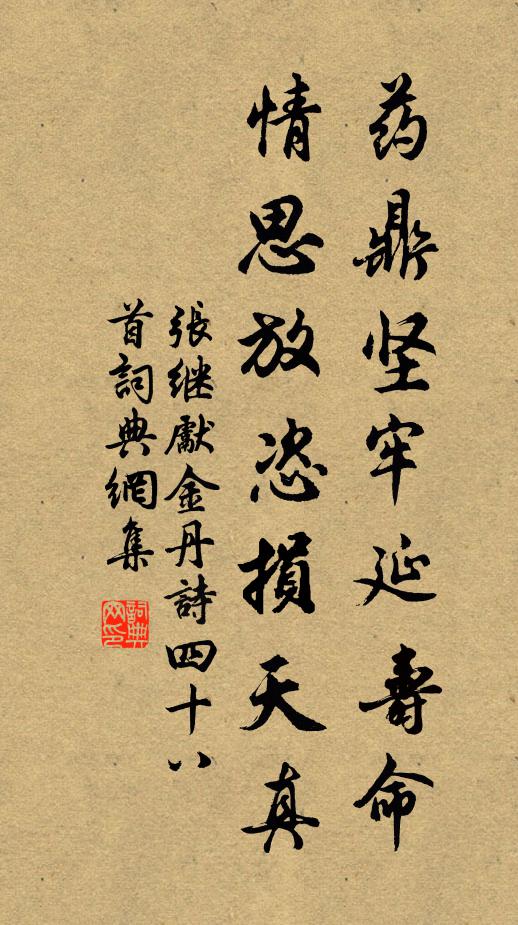 药鼎坚牢延壽命
情思放恣損天真
張继獻金丹詩四十八
首詞典網集
詞典網印